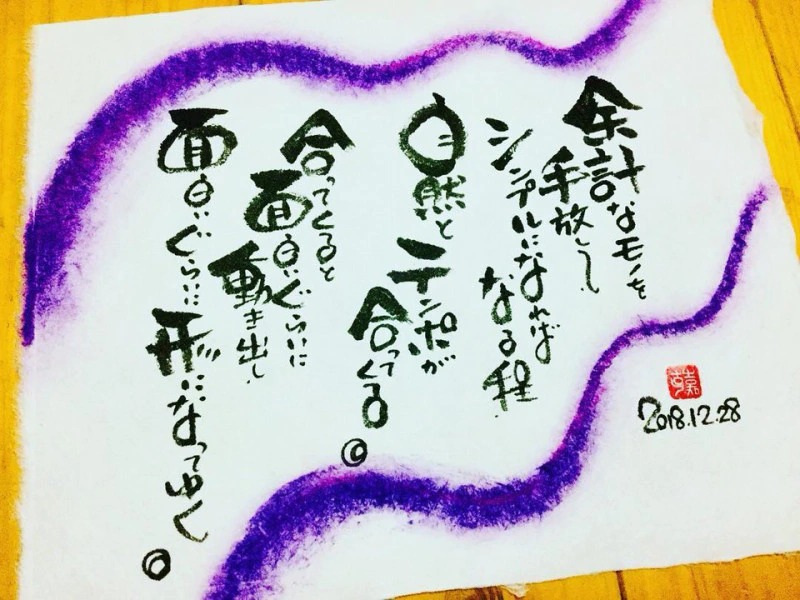 余計なモノを
手放して
シンプルになれば
なる程
自然と
テンポが
合ってくる。
合ってくると
面白いぐらいに
動き出し
面白いぐらいに
形になってゆく。
2018.12.28